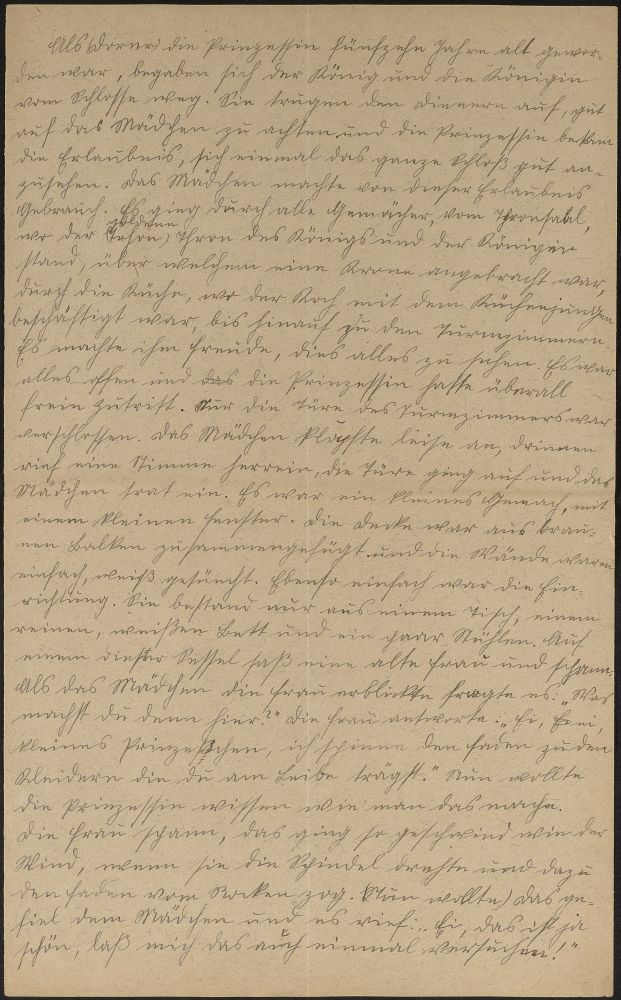 Als (Dorn) die Prinzessin fünfzehn Jahre alt gewor-
den war, begaben sich der König und die Königin
vom Schlosse weg. Sie trugen den Dienern auf, gut
auf das Mädchen zu achten, und die Prinzessin bekam
die Erlaubnis, sich einmal das ganze Schloß gut an-
zusehen. Das Mädchen machte von dieser Erlaubnis
Gebrauch. Es ging durch alle Gemächer, vom Thronsaal,
goldene
wo der Thron des Königs und der Königin
stand, über welchem eine Krone angebracht war,
durch die Küche, wo der Koch mit dem Küchenjungen
beschäftigt war, bis hinauf zu den Turmzimmern.
Es machte ihm Freude, dies alles zu sehen. Es war
alles offen und das die Prinzessin hatte überall
freien Zutritt. Nur die Türe des Turmzimmers war
verschlossen. Das Mädchen klopfte leise an, drinnen
rief eine Stimme herrein, die Türe ging auf und das
Mädchen trat ein. Es war ein kleines Gemach, mit
einem kleinen Fenster. Die Decke war aus brau-
nen Balken zusammengefügt und die Wände waren
einfach, weiß getüncht. Ebenso einfach war die Ein-
richtung. Sie bestand nur aus einem Tisch, einem
reinen, weißen Bett und ein paar Stühlen. Auf
einem dieser Sessel saß eine alte Frau und spann.
Als das Mädchen die Frau erblickte fragte es: „Was
machst du denn hier?" Die Frau antworte: „Ei, Ei ei,
kleines Prinzeßchen, ich spinne den Faden zu den
Kleidern die du am Leibe trägst." Nun wollte
die Prinzessin wissen wie man das mache.
Die Frau spann, das ging so geschwind wie der
Wind, wenn sie die Spindel drehte und dazu
den Faden vom Rocken zog. (Nun wollte) Das ge-
fiel dem Mädchen und es rief: „Ei, das ist ja
schön, laß mich das auch einmal versuchen!"